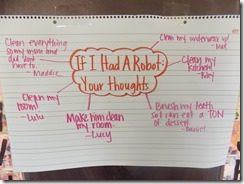 If I Had A Robot:
Your thoughts
Clean everything
so my mom and
dad don't
have to.
- Maddie
Clean my
room!
- Lulu
Make him clean
my room.
- Lucy
Clean my underwear
Clean my
kitchen!
- Riley
Brush my teeth
so I can eat a TON
of dessert